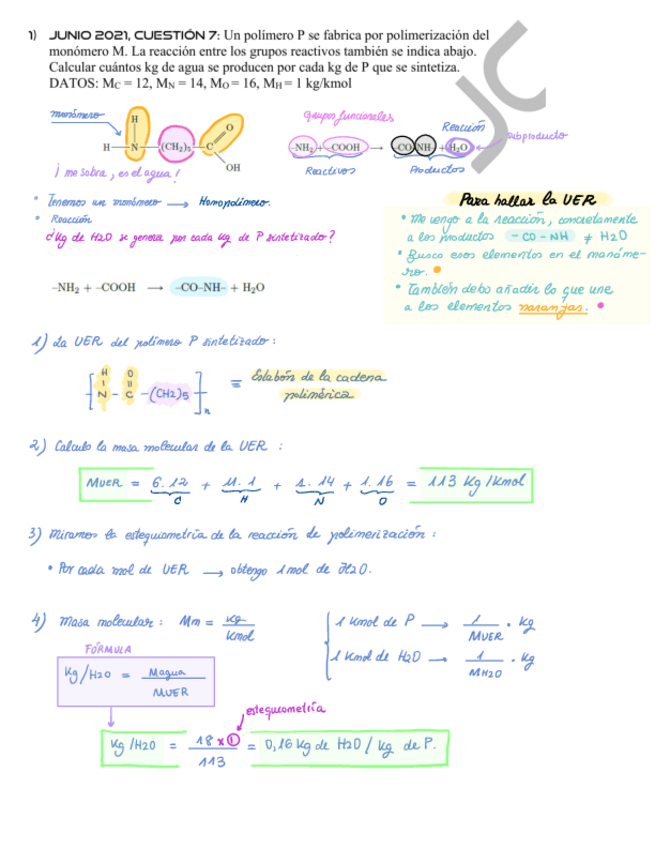 1) JUNIO 2021, CUESTIÓN 7: Un polímero P se fabrica por polimerización del
monómero M. La reacción entre los grupos reactivos también se indica abajo.
Calcular cuántos kg de agua se producen por cada kg de P que se sintetiza.
DATOS: MC = 12, MN = 14, MO = 16, MH = 1 kg/kmol
JC
monómero
H
H—N—(CH2)5—C
O
OH
¡ me sobra, es el agua !
Grupos funcionales
Reacción
subproducto
-NH2 + -COOH → -CO-NH- + H2O
Reactivos
Productos
• Tenemos un monómero → Homopolímero.
• Reacción
¿Kg de H2O se genera por cada kg de P sintetizado?
–NH2 + –COOH → –CO–NH– + H2O
Para hallar la UER
• Me vengo a la reacción, concretamente
a los productos - CO - NH ≠ H2O
• Busco esos elementos en el monóme-
ro.
• También debo añadir lo que une
a los elementos naranjas.
1) La UER del polímero P sintetizado:
H O
[ N - C - (CH2)5 ]n
= Eslabón de la cadena
polimérica
2) Calculo la masa molecular de la UER :
MUER = 6.12 + 11.1 + 1.14 + 1.16 = 113 Kg/Kmol
C H N O
3) Miramos la estequiometría de la reacción de polimerización :
• Por cada mol de UER → obtengo 1 mol de H2O.
4) Masa molecular: Mm = Kg / Kmol
1 Kmol de P → 1 / MUER . Kg
1 Kmol de H2O → 1 / MH2O . Kg
FÓRMULA
Kg/H2O = Magua / MUER
estequiometría
Kg/H2O = 18 x 1 / 113 = 0,16 Kg de H2O / kg de P.